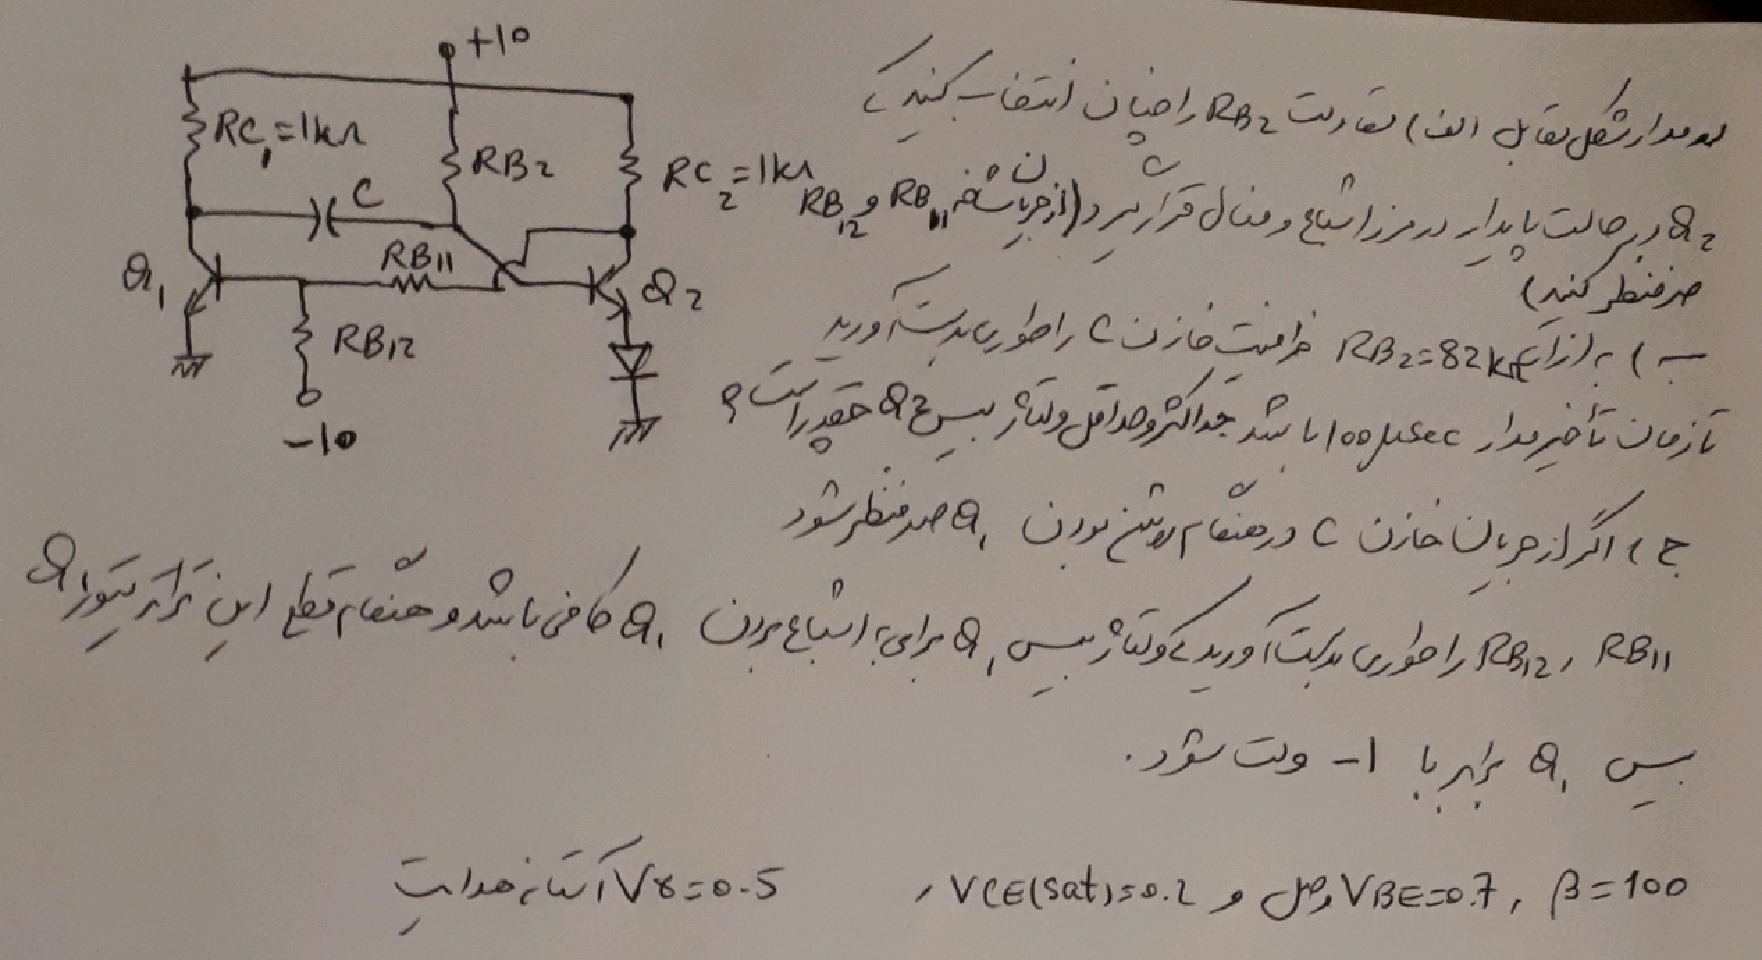 +10
RC1=1kΩ
C
RB2
RC2=1kΩ
RB11
Q1
Q2
RB12
-10
در مدار شکل مقابل الف) مقاومت RB2 را چنان انتخاب کنید که
Q2 در حالت پایدار در مرز اشباع و فعال قرار گیرد (از جریان شاخه RB11 و RB12
صرفنظر کنید)
ب) به ازای RB2=82kΩ ظرفیت خازن C را طوری بدست آورید
تا زمان تأخیر مدار 100μsec باشد حداکثر و حداقل ولتاژ بیس Q2 چقدر است؟
ج) اگر از جریان خازن C در هنگام روشن بودن Q1 صرفنظر شود
RB11 , RB12 را طوری بدست آورید که ولتاژ بیس Q1 برای به اشباع بردن Q1 کافی باشد و هنگام قطع این ترانزیستور Q
بیس Q1 برابر با 1- ولت شود.
β=100 , VBE=0.7 وصل و VCE(sat)=0.2 , Vγ=0.5 آستانه هدایت